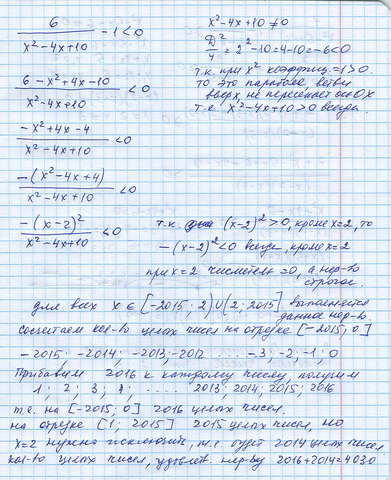 6 / (x²-4x+10) - 1 < 0
(6-x²+4x-10) / (x²-4x+10) < 0
(-x²+4x-4) / (x²-4x+10) < 0
-(x²-4x+4) / (x²-4x+10) < 0
-(x-2)² / (x²-4x+10) < 0
x²-4x+10 ≠ 0
D²/4 = 2²-10=4-10=-6<0
т.к. при x² коэффиц=1>0.
то это парабола, ветви
вверх, не пересекает ось Ox
т.е x²-4x+10>0 всегда.
т.к. (x-2)²>0, кроме x=2, то
-(x-2)²<0 всегда, кроме x=2
при x=2 числитель =0, а нер-во
строгое.
для всех x ∈ [-2015; 2)∪(2; 2015] выполняется
данное нер-во.
сосчитаем кол-во целых чисел на отрезке [-2015; 0]
-2015; -2014; -2013; -2012 ..... -3; -2; -1; 0
Прибавим 2016 к каждому числу, получим
1; 2; 3; 4; ...... 2013; 2014; 2015; 2016
т.е. на [-2015; 0] 2016 целых чисел.
на отрезке [1; 2015] 2015 целых чисел, но
x=2 нужно исключить, т.е будет 2014 целых чисел
кол-во целых чисел, удовлет. нер-ву 2016+2014=4030